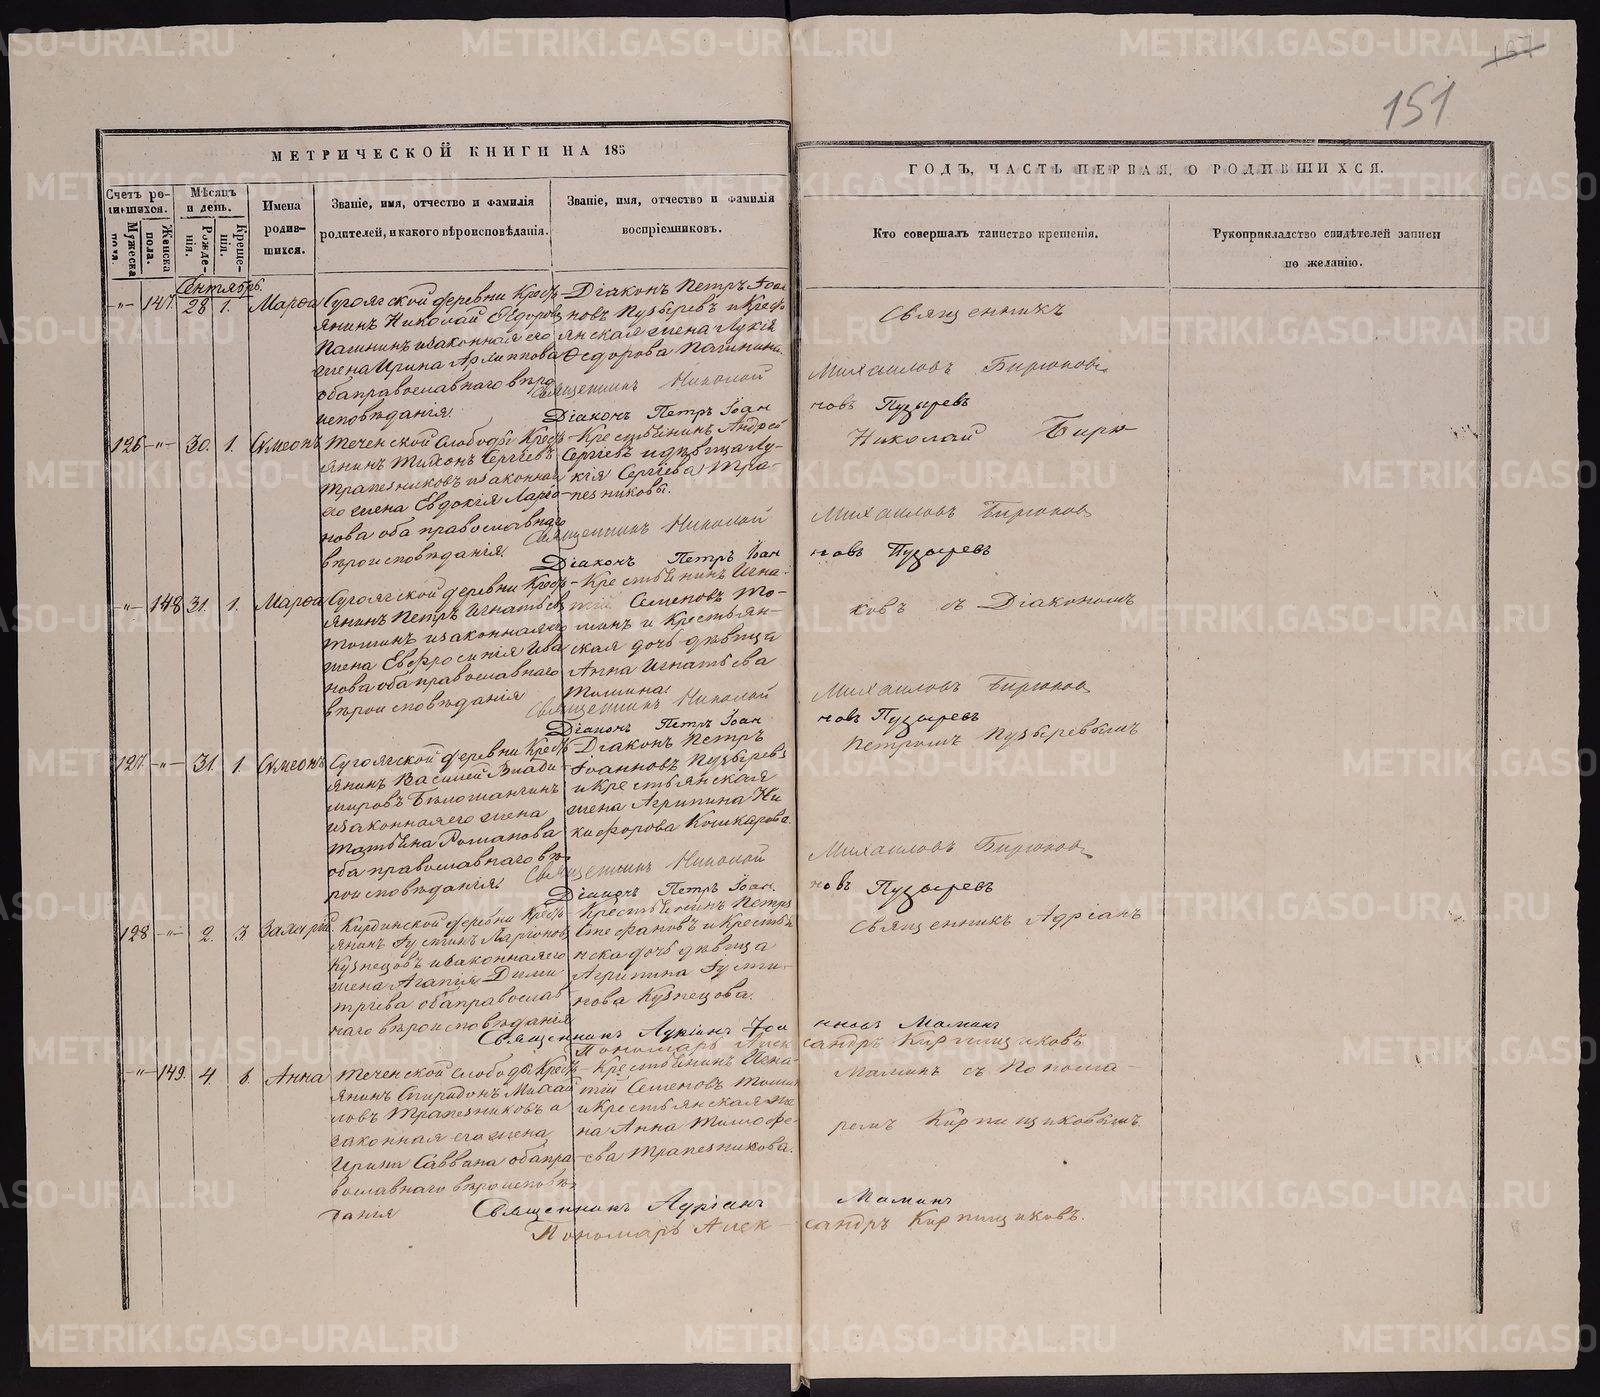 167
151
МЕТРИЧЕСКОЙ КНИГИ НА 185
ГОДЪ, ЧАСТЬ ПЕРВАЯ, О РОДИВШИХСЯ.
Счетъ родившихся.
Мужеска пола.
Женска пола.
Мѣсяцъ и день.
Рожденія.
Крещенія.
Имена родившихся.
Званіе, имя, отчество и фамилія
родителей, и какого вѣроисповѣданія.
Званіе, имя, отчество и фамилія
воспріемниковъ.
Кто совершалъ таинство крещенія.
Рукоприкладство свидѣтелей записи
по желанію.
Сентябрь.
-"- 147. 28 1. Марѳа
Сугоякской деревни Крест-
янинъ Николай Ѳедоровъ
Пашнинъ изаконная его
жена Ирина Архиппова
оба православнаго вѣро
исповѣданія.
Діаконъ Петръ Іоан
новъ Пузыревъ и Кресть
янская жена Лукія
Ѳедорова Пашнина.
Священникъ Николай Михаиловъ Бирюковъ
Діаконъ Петръ Іоанновъ Пузыревъ
126 -"- 30. 1. Симеонъ
Теченской Слободы Крест-
янинъ Тихонъ Сергѣевъ
Трапезниковъ изаконная
его жена Евдокія Ларіо-
нова оба православнаго
вѣроисповѣданія.
Крестьянинъ Андрей
Сергѣевъ и дѣвица Лу-
кія Сергѣева Тра-
пезниковы.
Священникъ Николай Михаиловъ Бирюковъ
Діаконъ Петръ Іоанновъ Пузыревъ
-"- 148 31. 1. Марѳа
Сугоякской деревни Крест-
янинъ Петръ Игнатьевъ
Томинъ изаконная его
жена Евфросинія Ива
нова оба православнаго
вѣроисповѣданія
Крестьянинъ Игна-
тій Семеновъ То-
минъ и Крестьян-
ская дочь дѣвица
Анна Игнатьева
Томина.
Священникъ Николай Михаиловъ Бирюковъ
Діаконъ Петръ Іоанновъ Пузыревъ
127. -"- 31. 1. Симеонъ
Сугоякской деревни Крест-
янинъ Василей Влади-
мировъ
изаконная его жена
Татьяна Романова
оба православнаго вѣ-
роисповѣданія.
Діаконъ Петръ
Іоанновъ Пузыревъ
и Крестьянская
жена Агрипина Ни
кифорова Кошкарова.
Священникъ Николай Михаиловъ Бирюковъ
Діаконъ Петръ Іоанновъ Пузыревъ
128 -"- 2. 3. Захарій
Кирдинской деревни Крест-
янинъ Іустинъ Ларіоновъ
Кузнецовъ изаконная его
жена Агапія Дими
тріева оба православ
наго вѣроисповѣданія
Крестьянинъ Петръ
Стефановъ и Крестья
нска дочь дѣвица
Агрипина Іусти-
нова Кузнецова.
Священникъ Адріанъ Іоанновъ Маминъ
Пономарь Александръ Кирпищиковъ
-"- 149. 4. 6. Анна
Теченской слободы Крест-
янинъ Спиридонъ Михаи
ловъ Трапезниковъ и
законная его жена
Ирина Саввина оба пра-
вославнаго вѣроисповѣ-
данія
Крестьянинъ Игна-
тій Семеновъ Томин
и Крестьянская же
на Анна Тимофе-
ева Трапезникова.
Священникъ Адріанъ Маминъ
Пономарь Александръ Кирпищиковъ.
Священникъ
Николай Бирю-
ковъ съ Діакономъ
Петромъ Пузыревымъ
Священникъ Адріанъ
Маминъ съ Понома-
ремъ Кирпищиковымъ.
METRIKI.GASO-URAL.RU